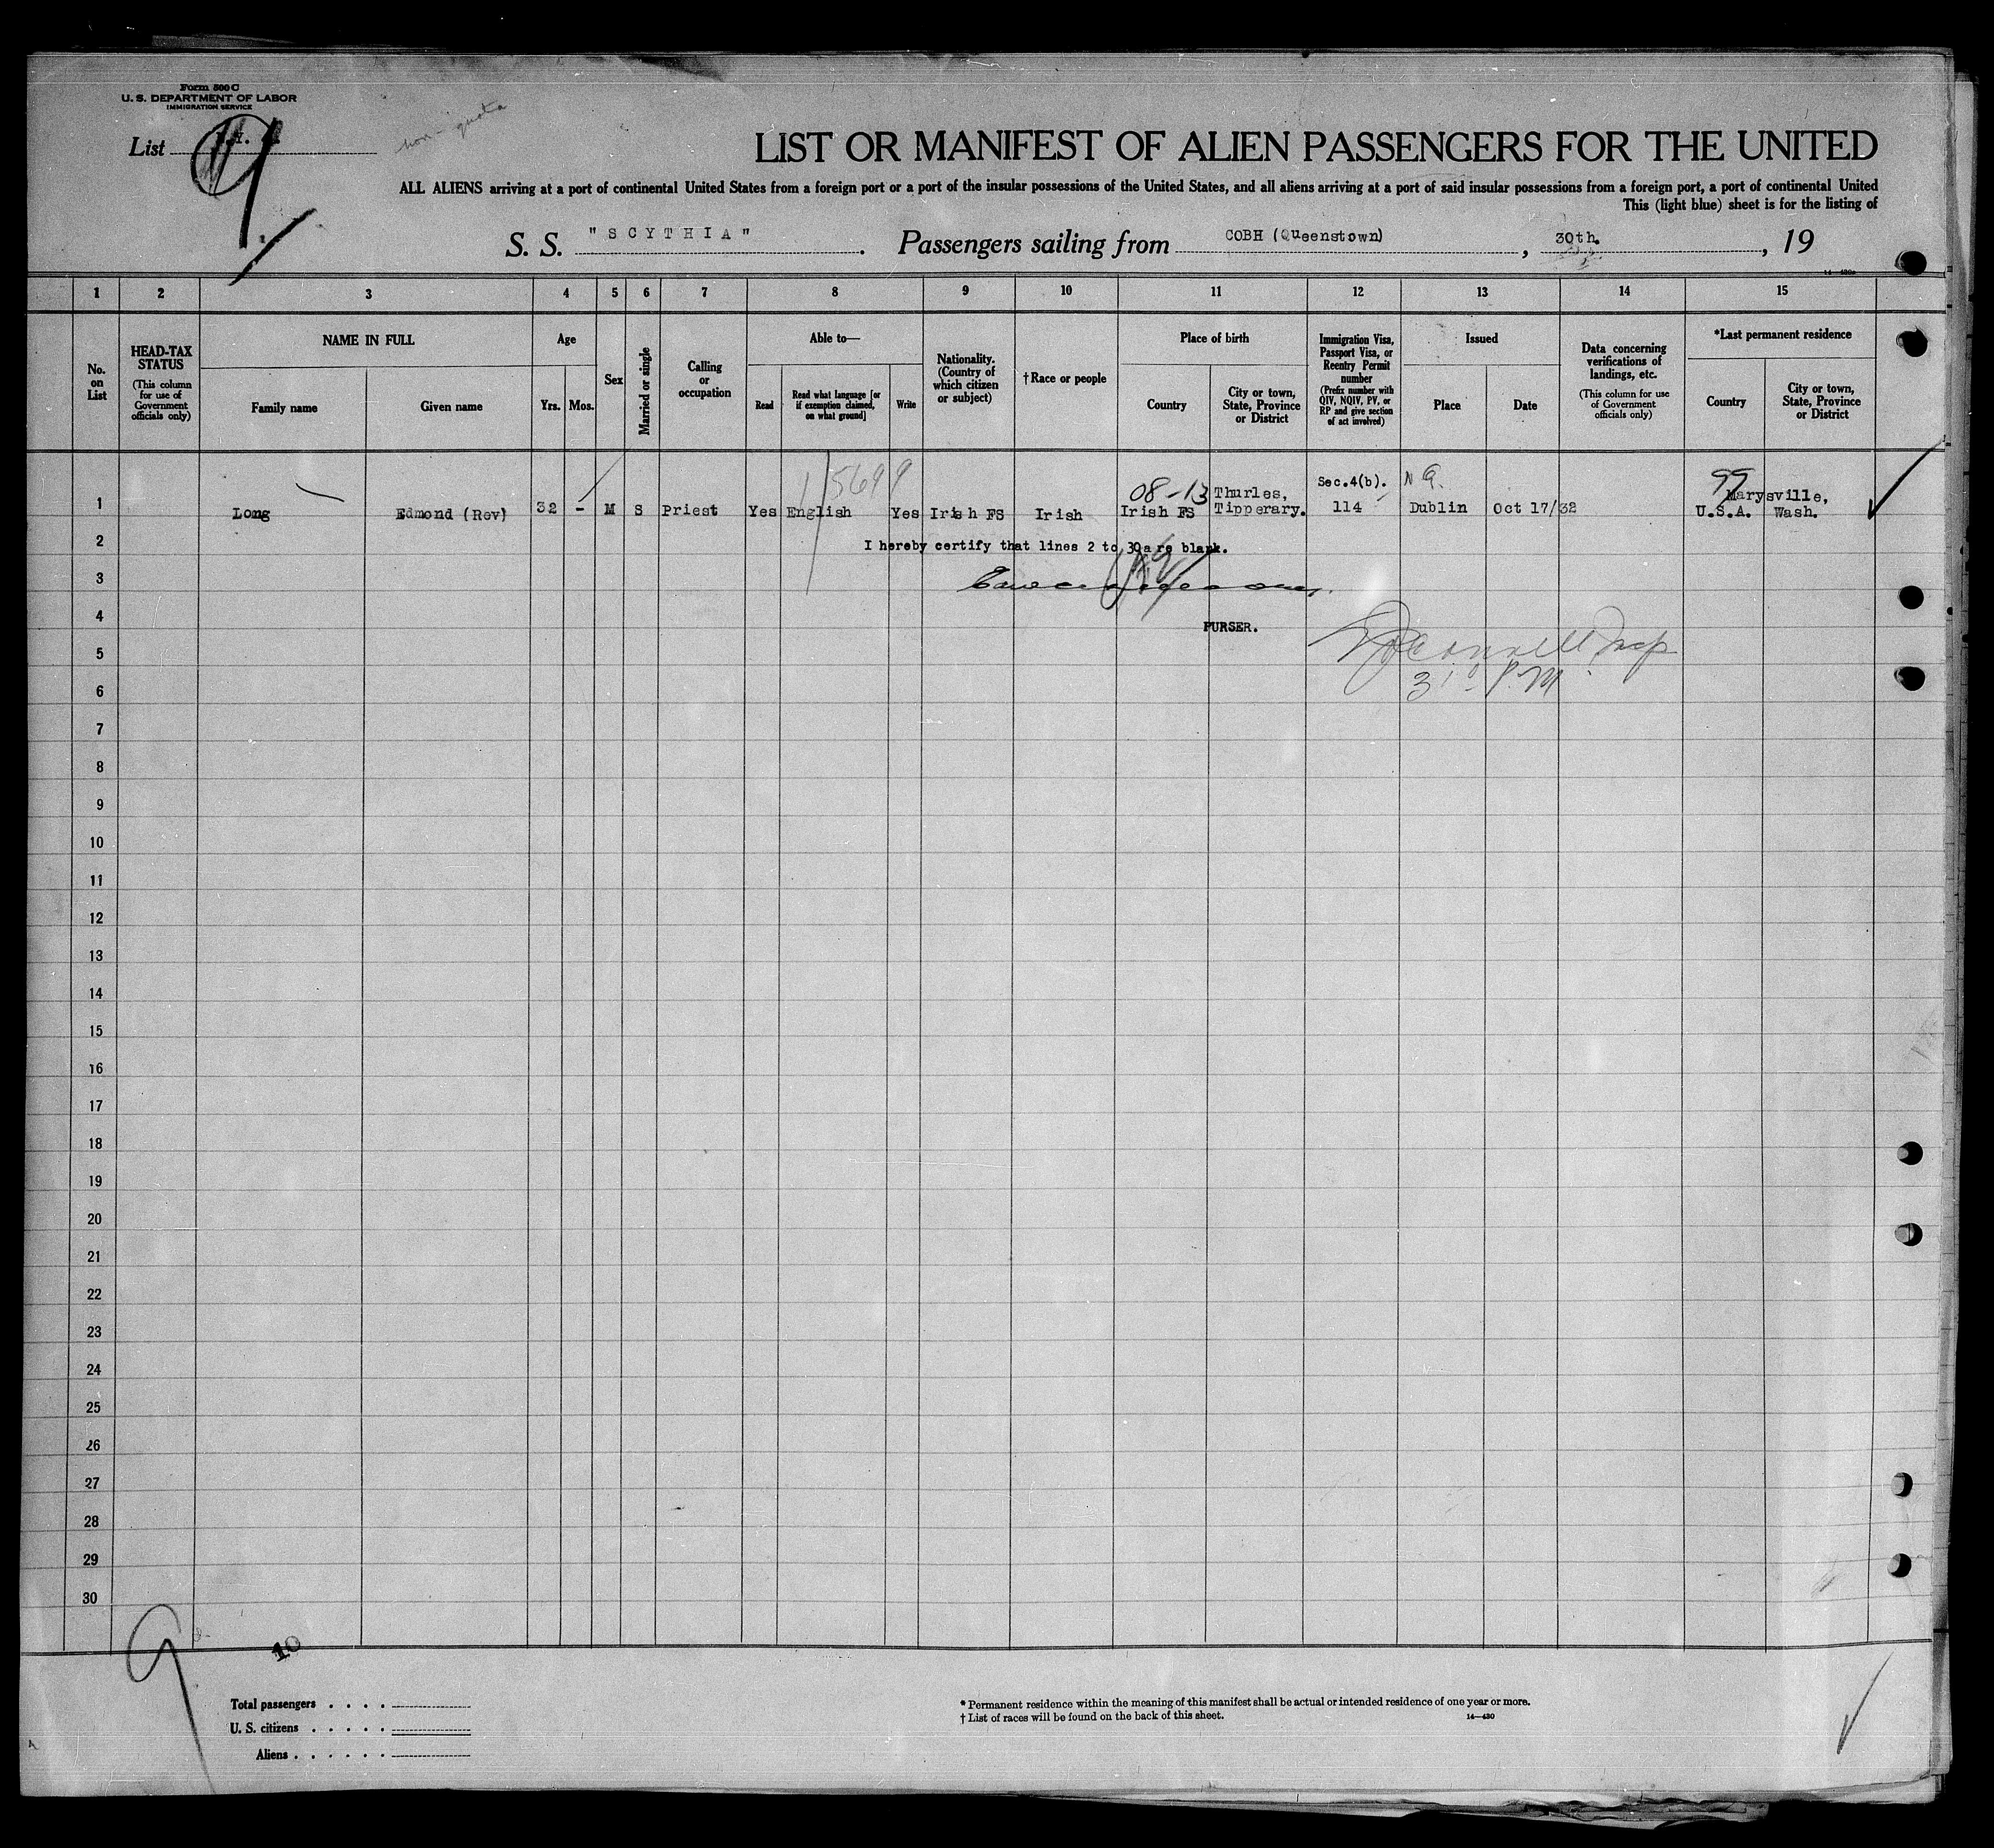 Form 500 C
U. S. DEPARTMENT OF LABOR
IMMIGRATION SERVICE
List
non-quota
LIST OR MANIFEST OF ALIEN PASSENGERS FOR THE UNITED
ALL ALIENS arriving at a port of continental United States from a foreign port or a port of the insular possessions of the United States, and all aliens arriving at a port of said insular possessions from a foreign port, a port of continental United
This (light blue) sheet is for the listing of
S. S. "SCYTHIA". Passengers sailing from COBH (Queenstown), 30th., 19
1 2 3 4 5 6 7 8 9 10 11 12 13 14 15
No. on List
HEAD-TAX STATUS
(This column for use of Government officials only)
NAME IN FULL
Family name
Given name
Age
Yrs. Mos.
Sex
Married or single
Calling or occupation
Able to—
Read
Read what language [or if exemption claimed, on what ground]
Write
Nationality. (Country of which citizen or subject)
†Race or people
Place of birth
Country
City or town, State, Province or District
Immigration Visa, Passport Visa, or Reentry Permit number
(Prefix number with QIV, NQIV, PV, or RP and give section of act involved)
Issued
Place
Date
Data concerning verifications of landings, etc.
(This column for use of Government officials only)
*Last permanent residence
Country
City or town, State, Province or District
1 Long Edmond (Rev) 32 - M S Priest Yes English Yes Irish FS Irish Irish FS Thurles, Tipperary. Sec.4(b). 114 Dublin Oct 17/32 U.S.A. Marysville, Wash.
08-13
99
2 I hereby certify that lines 2 to 30 are blank.
3
4 PURSER.
5
6
7
8
9
10
11
12
13
14
15
16
17
18
19
20
21
22
23
24
25
26
27
28
29
30
9
10
Total passengers . . . .
U. S. citizens . . . . .
Aliens . . . . . .
* Permanent residence within the meaning of this manifest shall be actual or intended residence of one year or more.
† List of races will be found on the back of this sheet.
14—430